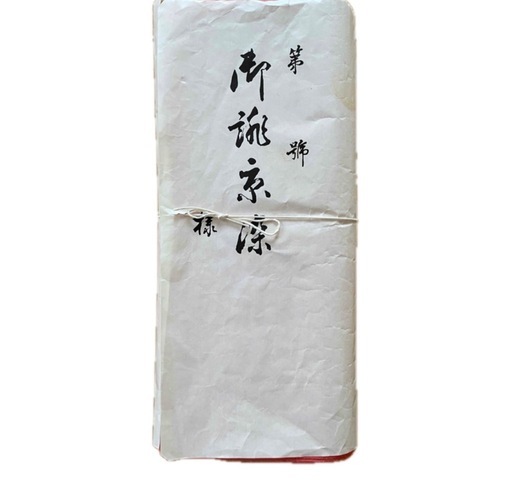 第 號
御誂京染
様